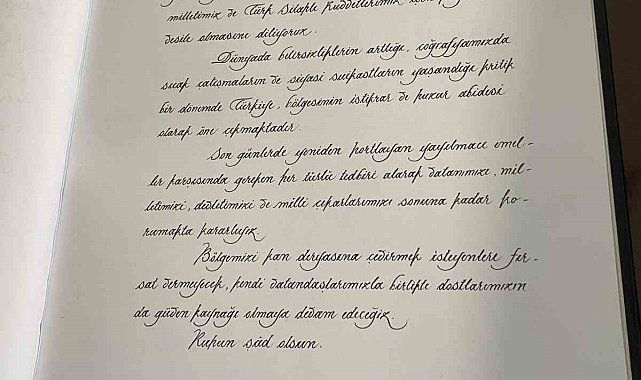 milletimiz ve Türk Silahlı Kuvvetlerimiz
vesile olmasını diliyoruz.
Dünyada belirsizliklerin arttığı, coğrafyamızda
sıcak çatışmaların ve siyasi suikastların yaşandığı kritik
bir dönemde Türkiye, bölgesinin istikrar ve huzur abidesi
olarak öne çıkmaktadır.
Son günlerde yeniden hortlayan yayılmacı emel-
ler karşısında gereken her türlü tedbiri alarak vatanımızı, mil-
letimizi, devletimizi ve milli çıkarlarımızı sonuna kadar ko-
rumakta kararlıyız.
Bölgemizi kan deryasına çevirmek isteyenlere fır-
sat vermeyecek, kendi vatandaşlarımızla birlikte dostlarımızın
da güven kaynağı olmaya devam edeceğiz.
Ruhun şâd olsun.